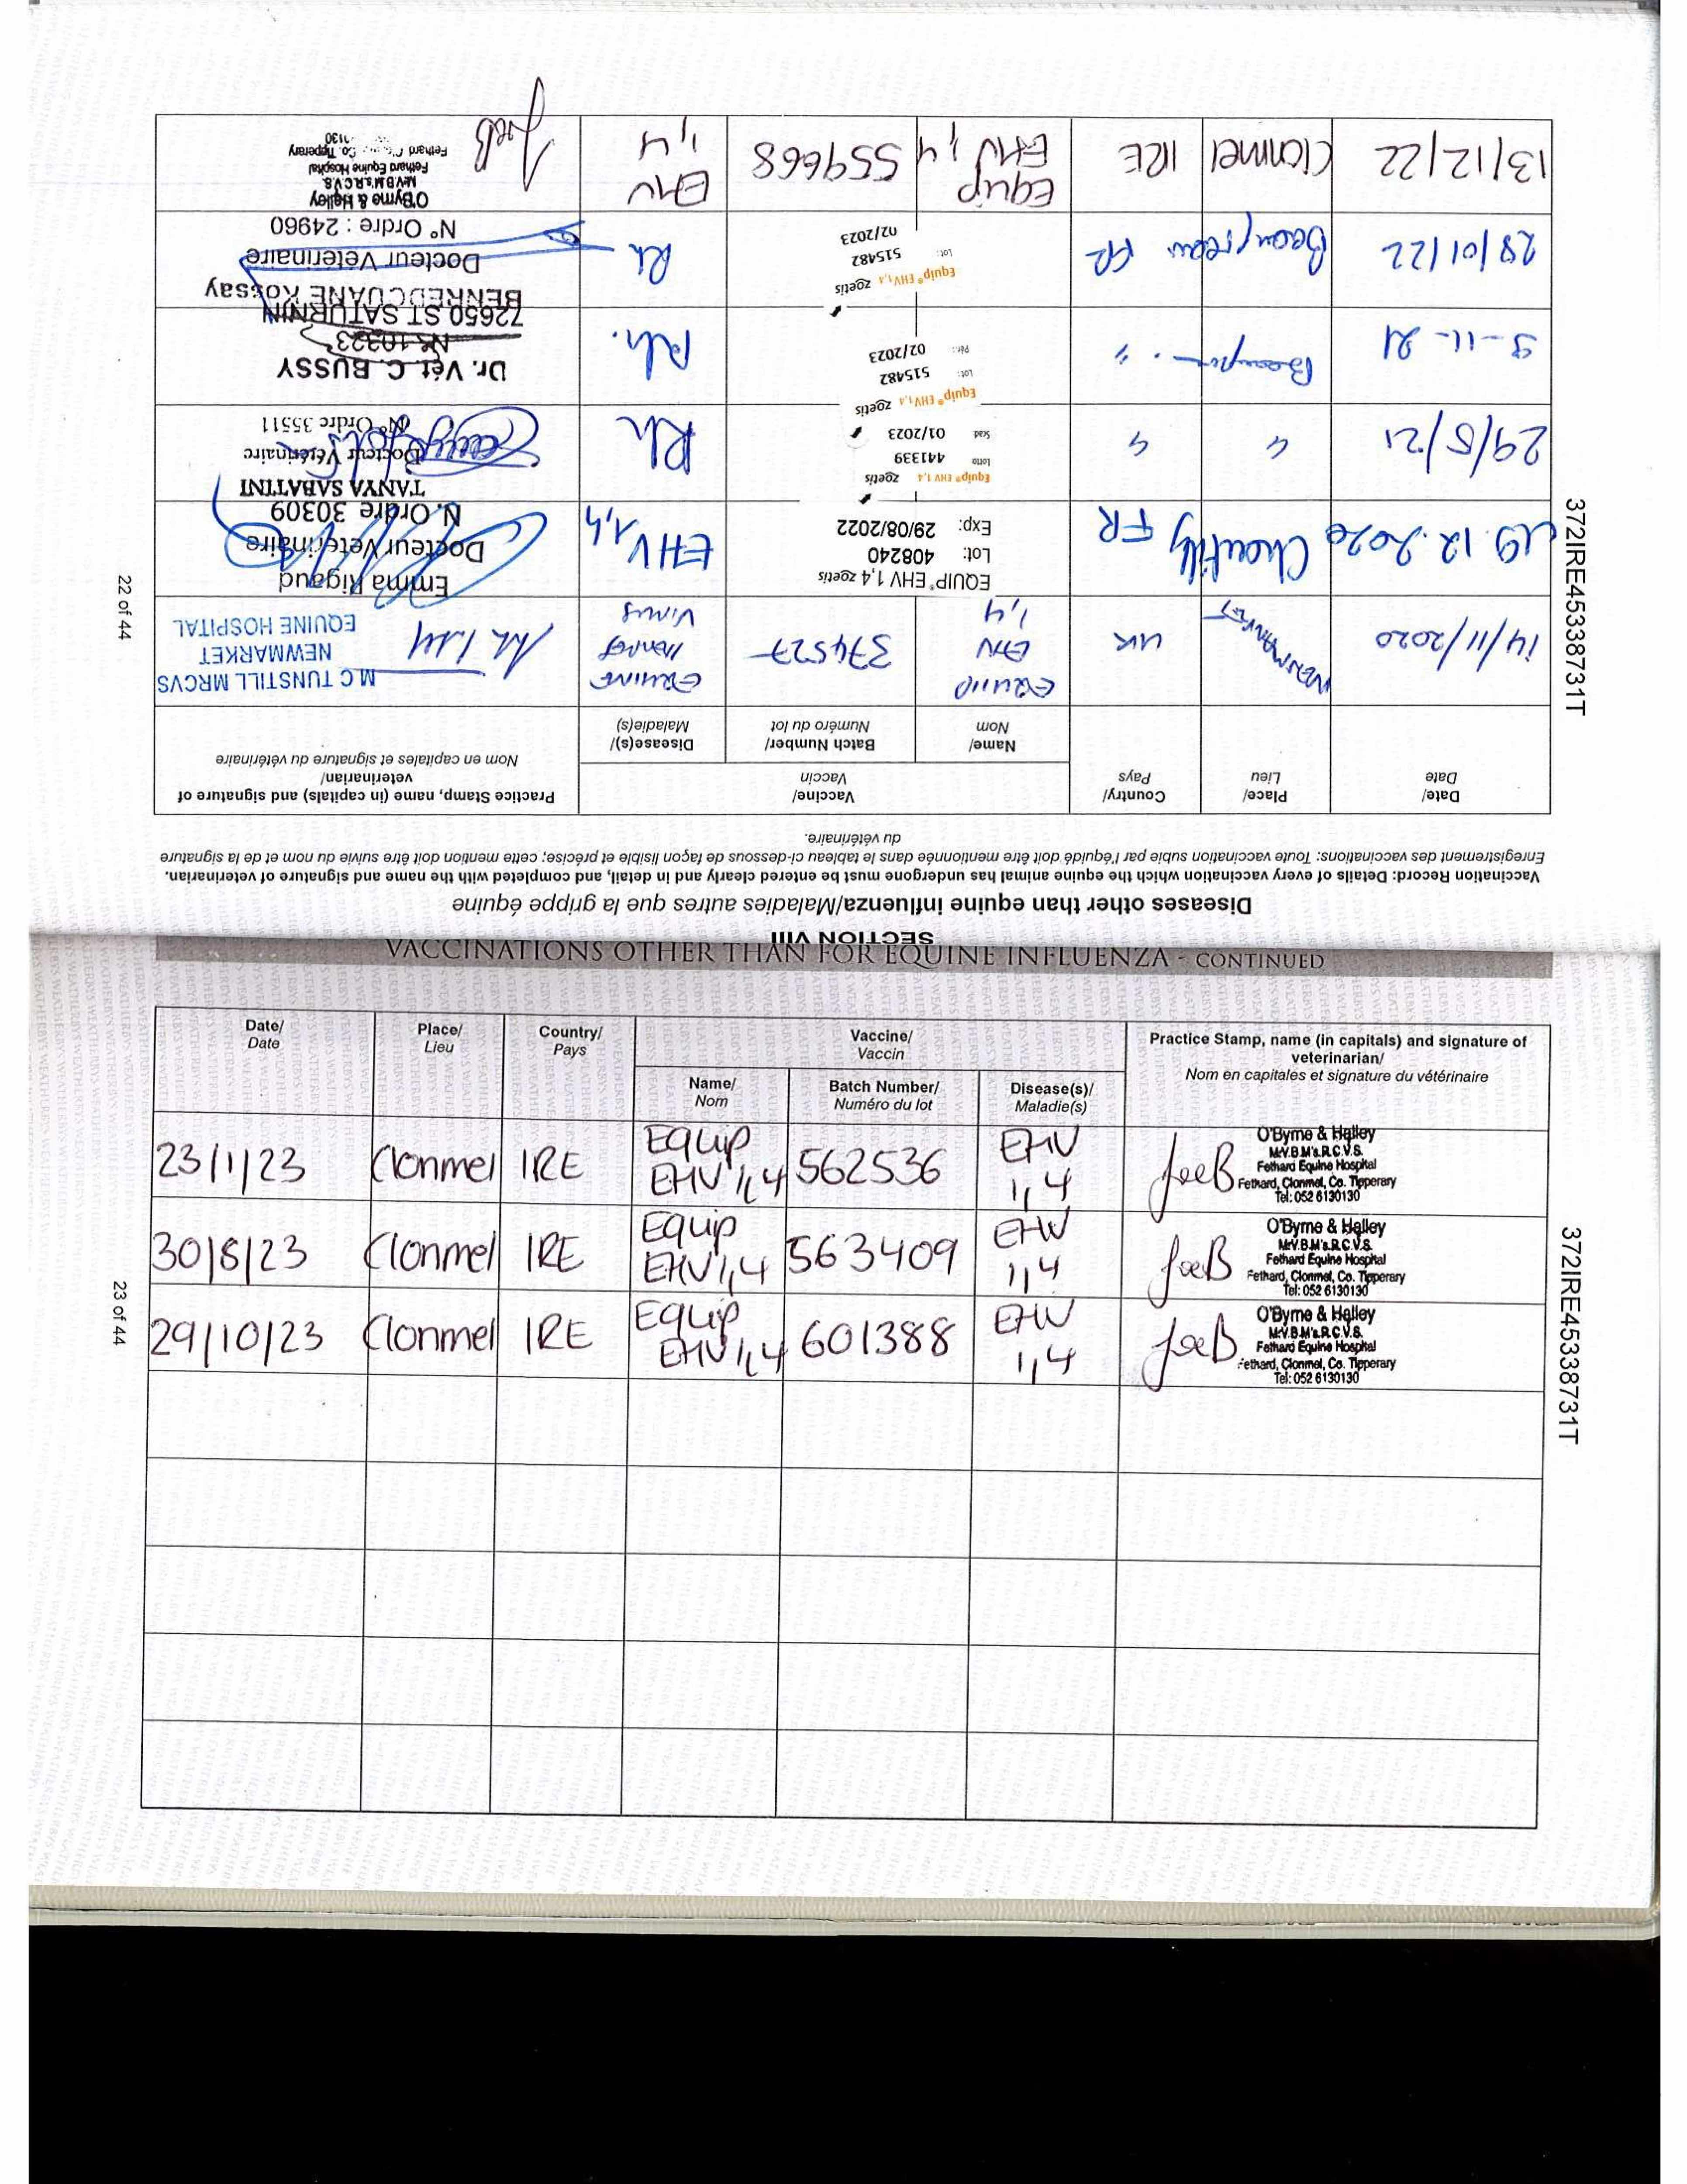 SECTION VIII
Diseases other than equine influenza/Maladies autres que la grippe équine
Vaccination Record: Details of every vaccination which the equine animal has undergone must be entered clearly and in detail, and completed with the name and signature of veterinarian.
Enregistrement des vaccinations: Toute vaccination subie par l'équidé doit être mentionnée dans le tableau ci-dessous de façon lisible et précise; cette mention doit être suivie du nom et de la signature
du vétérinaire.
Date/
Date
Place/
Lieu
Country/
Pays
Vaccine/
Vaccin
Practice Stamp, name (in capitals) and signature of
veterinarian/
Nom en capitales et signature du vétérinaire
Name/
Nom
Batch Number/
Numéro du lot
Disease(s)/
Maladie(s)
14/11/2020
NEWMARKET
UK
EQUIP
EHV
1,4
374527
EQUINE
HERPES
VIRUS
M.C TUNSTILL MRCVS
NEWMARKET
EQUINE HOSPITAL
19.12.2020
Chantilly
FR
EQUIP® EHV 1,4 zoetis
Lot: 408240
Exp: 29/08/2022
EHV 1,4
Emma Rigaud
Docteur Vétérinaire
N. Ordre 30309
29/5/21
"
"
Equip® EHV 1,4 zoetis
Lotto 441339
Scad 01/2023
Rh
TANYA SABATTINI
Docteur Vétérinaire
N° Ordre 35511
9-11-21
"
Equip® EHV 1,4 zoetis
Lot: 515482
Pér.: 02/2023
Rh.
Dr. Vét. C. BUSSY
N° 10323
72650 ST SATURNIN
28/01/22
FR
Equip® EHV 1,4 zoetis
Lot: 515482
02/2023
Rh
Rossay
Docteur Vétérinaire
N° Ordre : 24960
13/12/22
Clonmel
IRE
Equip
EHV 1,4
559668
EHV
1,4
O'Byrne & Halley
M.V.B.M's.R.C.V.S.
Fethard Equine Hospital
Fethard, Co. Tipperary
22 of 44
372IRE45338731T
VACCINATIONS OTHER THAN FOR EQUINE INFLUENZA - CONTINUED
Date/
Date
Place/
Lieu
Country/
Pays
Vaccine/
Vaccin
Practice Stamp, name (in capitals) and signature of
veterinarian/
Nom en capitales et signature du vétérinaire
Name/
Nom
Batch Number/
Numéro du lot
Disease(s)/
Maladie(s)
23/1/23
Clonmel
IRE
Equip
EHV 1,4
562536
EHV
1,4
O'Byrne & Halley
M.V.B.M's.R.C.V.S.
Fethard Equine Hospital
Fethard, Clonmel, Co. Tipperary
Tel: 052 6130130
30/8/23
Clonmel
IRE
Equip
EHV 1,4
563409
EHV
1,4
O'Byrne & Halley
M.V.B.M's.R.C.V.S.
Fethard Equine Hospital
Fethard, Clonmel, Co. Tipperary
Tel: 052 6130130
29/10/23
Clonmel
IRE
Equip
EHV 1,4
601388
EHV
1,4
O'Byrne & Halley
M.V.B.M's.R.C.V.S.
Fethard Equine Hospital
Fethard, Clonmel, Co. Tipperary
Tel: 052 6130130
23 of 44
372IRE45338731T